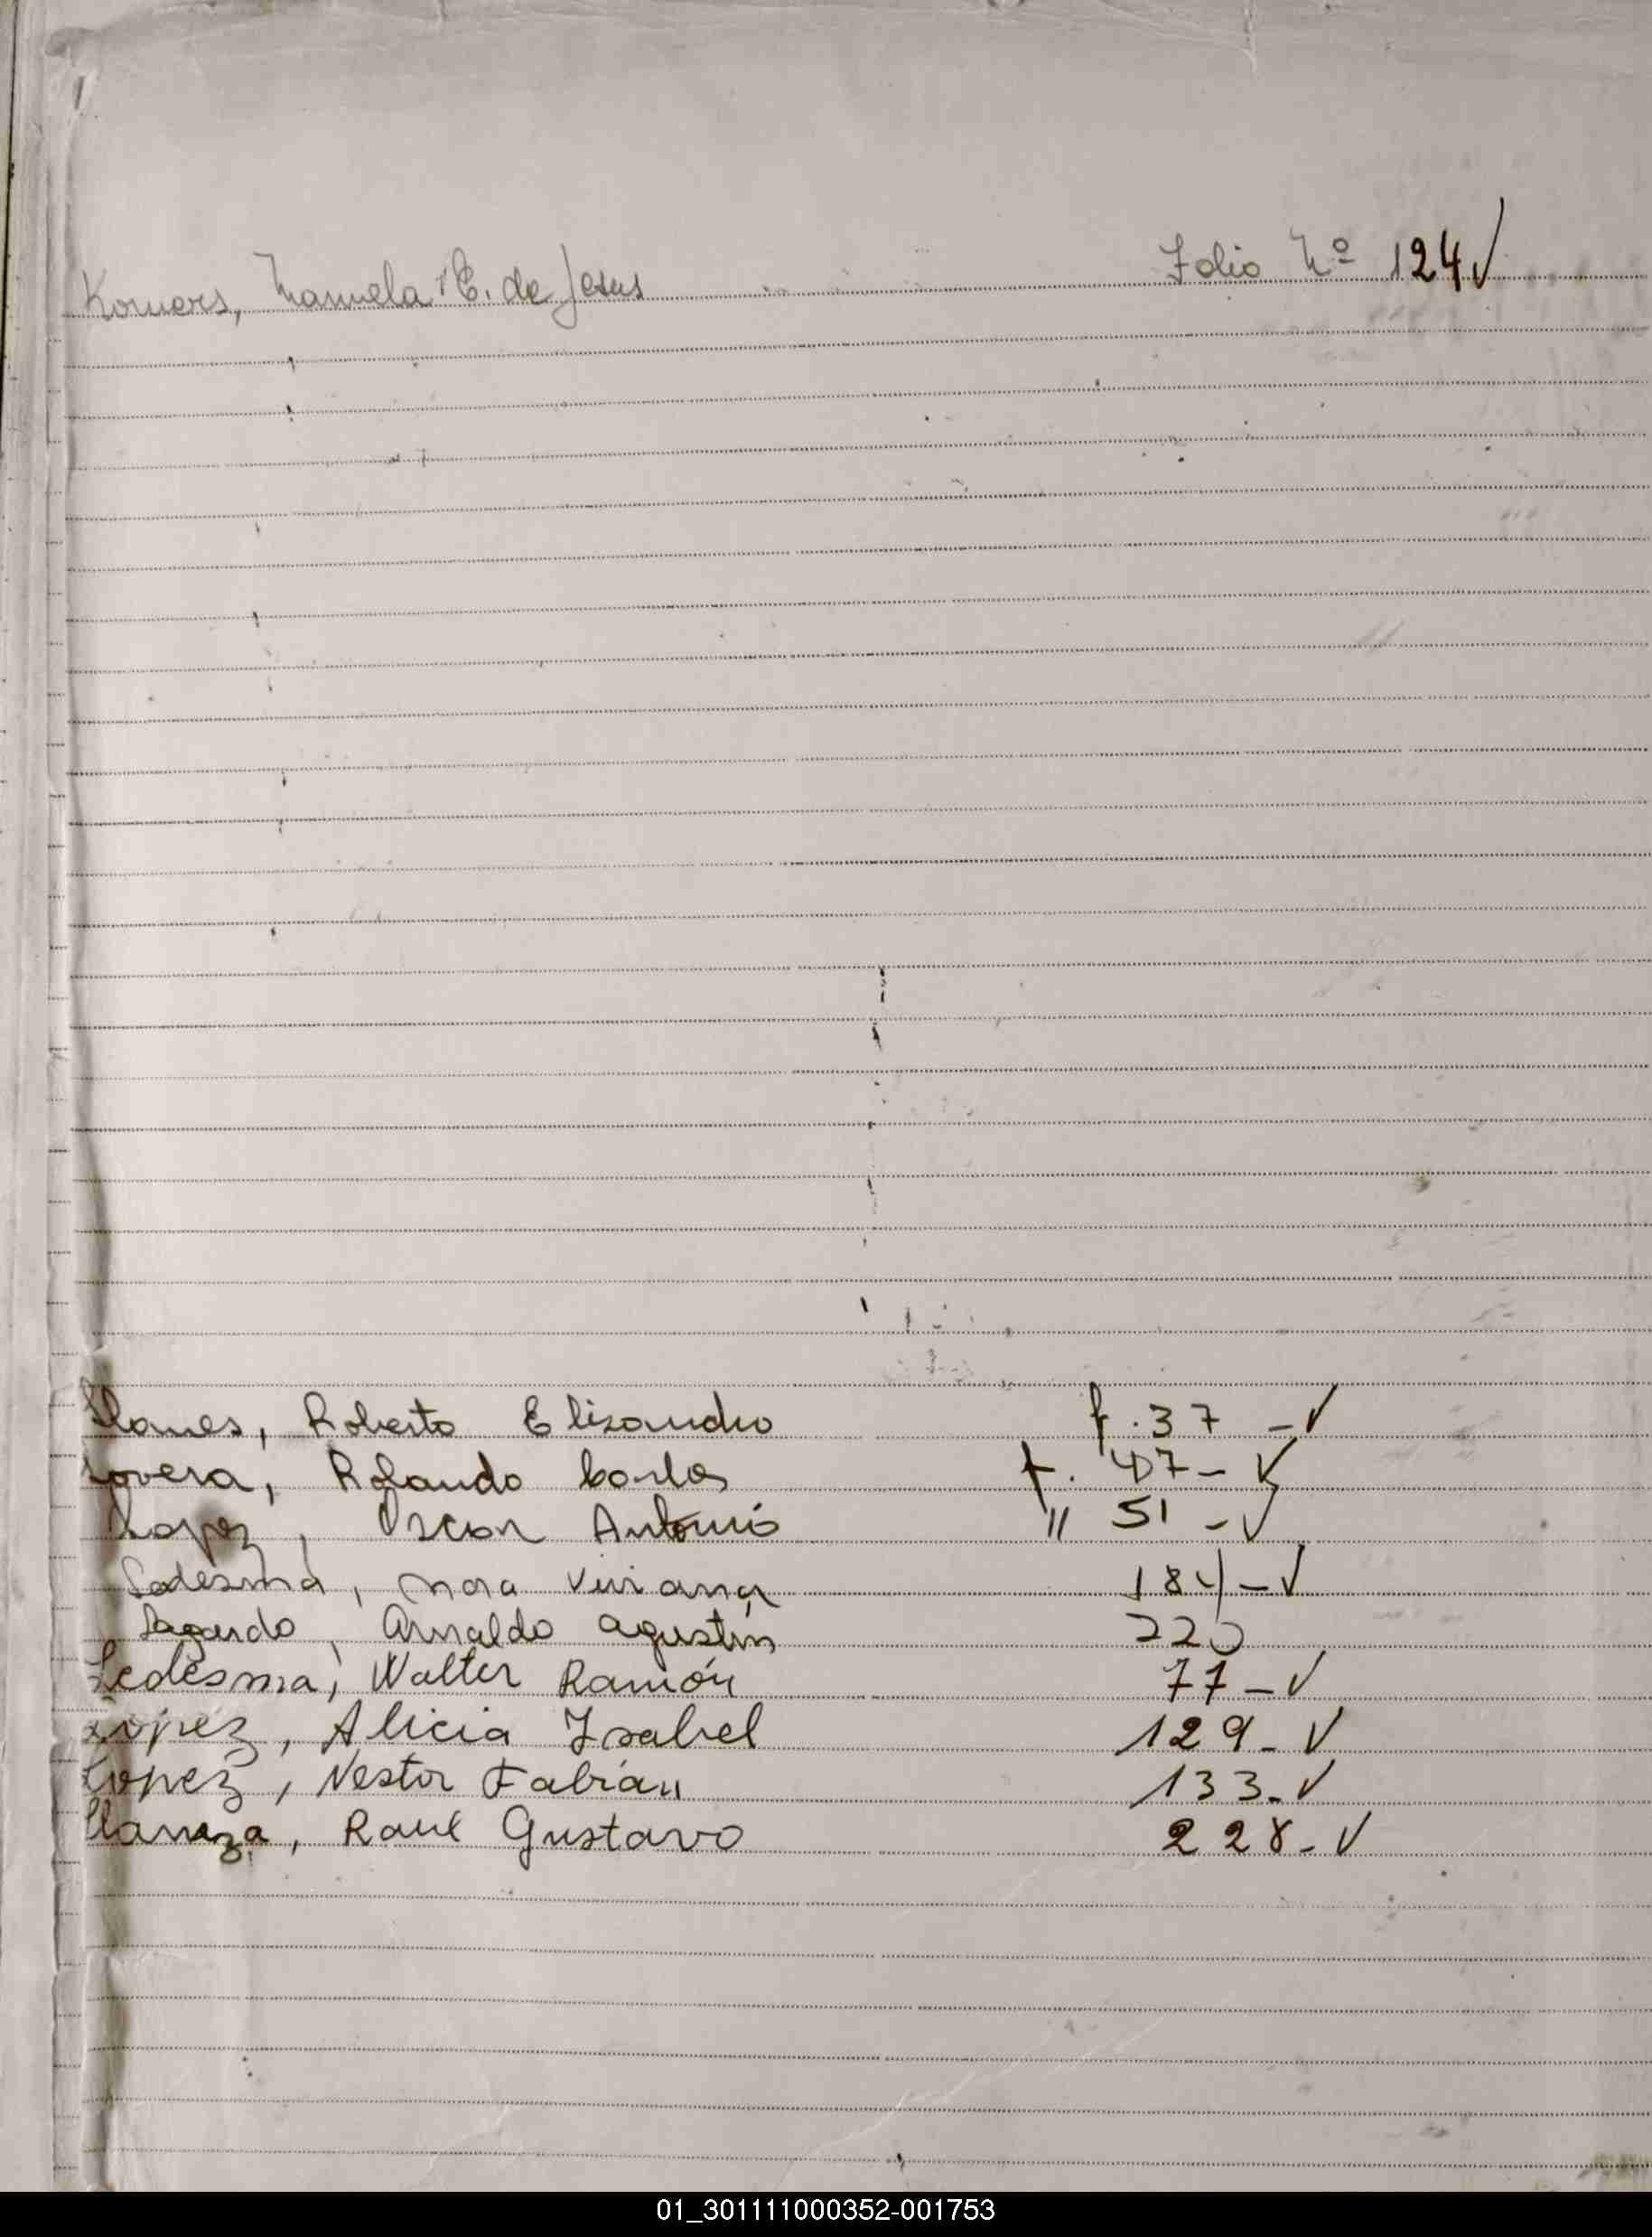 Komers, Manuela E. de Jesus Folio Nº 124 ✓
Llanes, Roberto Elizandro f. 37 - ✓
Lovera, Rolando Carlos f. 47 - ✓
Lopez, Oscar Antonio " 51 - ✓
Ledesma, Nora Viviana 184 - ✓
Arnaldo Agustín 220
Ledesma, Walter Ramón 77 - ✓
López, Alicia Isabel 129 - ✓
Lopez, Nestor Fabián 133 - ✓
Llaneza, Raul Gustavo 228 - ✓
01_301111000352-001753